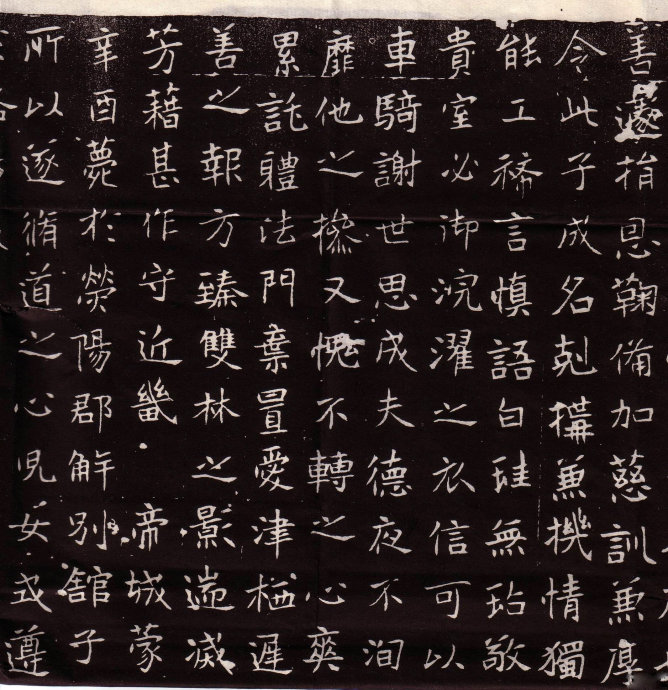 善邃捐恩鞠備加慈訓兼厚
令此子成名剋搆兼機情獨
能工稀言慎語白珪無玷敬
貴室必御浣濯之衣信可以
車騎謝世思成夫德夜不
靡他之摻又愧不轉之心爽
累託體法門棄置愛津栖遲
善之報方臻雙林之影遄滅
芳藉甚作守近畿帝城蒙
辛酉薨於熒陽郡解別舘子
所以遂脩道之心児女或遵